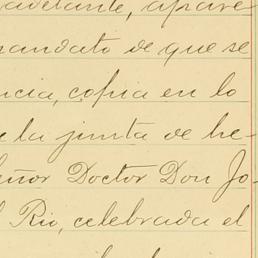 adelante, apare
mandato de que se
ncia, copia en lo
e la junta de he-
eñor Doctor Don Jo-
l Rio, celebrada el